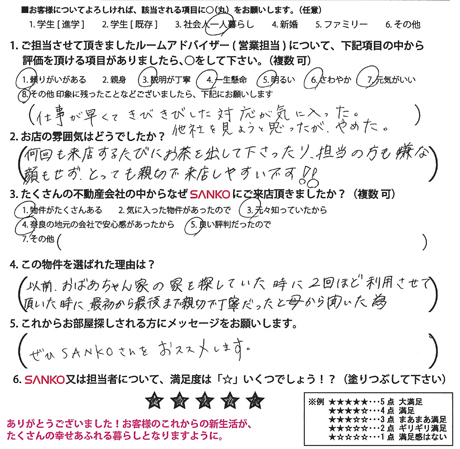 ■お客様についてよろしければ、該当される項目に〇(丸)をお願いします。(任意)
1. 学生 [ 進学 ] 2. 学生 [ 既存 ] 3. 社会人一人暮らし 4. 新婚 5. ファミリー 6. その他
1. ご担当させて頂きましたルームアドバイザー ( 営業担当 ) について、下記項目の中から
評価を頂ける項目がありましたら、〇をして下さい。( 複数 可 )
1. 頼りがいがある 2. 親身 3. 説明が丁寧 4. 一生懸命 5. 明るい 6. さわやか 7. 元気がいい
8. その他 印象に残ったことなどございましたら、下記にお願いします
仕事が早くて きびきびした 対応が気に入った。
他社を見ようと思ったが、やめた。
2. お店の雰囲気はどうでしたか?
何回も来店するたびにお茶を出して下さったり、担当の方も嫌な
顔もせず、とっても親切で来店しやすいです!!
3. たくさんの不動産会社の中からなぜ SANKO にご来店頂きましたか? ( 複数 可 )
1. 物件がたくさんある 2. 気に入った物件があったので 3. 元々知っていたから
4. 奈良の地元の会社で安心感があったから 5. 良い評判だったので
7. その他 ( )
4. この物件を選ばれた理由は?
以前、おばあちゃん家の家を探していた時に2回ほど利用させて
頂いた時に、最初から最後まで親切で丁寧だったと母から聞いた為
5. これからお部屋探しされる方にメッセージをお願いします。
ぜひSANKOさんをおススメします。
6. SANKO又は担当者について、満足度は「☆」いくつでしょう!? ( 塗りつぶして下さい )
★ ★ ★ ★ ★
※例 ★★★★★・・・5 点 大満足
★★★★☆・・・4 点 満足
★★★☆☆・・・3 点 まあまあ満足
★★☆☆☆・・・2 点 ギリギリ満足
★☆☆☆☆・・・1 点 満足感はない
ありがとうございました!お客様のこれからの新生活が、
たくさんの幸せあふれる暮らしとなりますように。